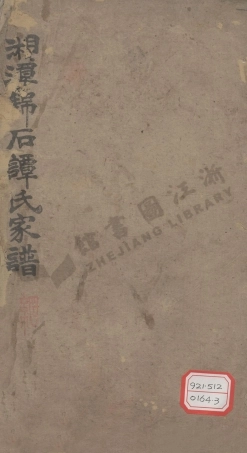 湘潭錦石譚氏家譜
浙江圖書館
ZHEJIANG LIBRARY
921·512
0164·3